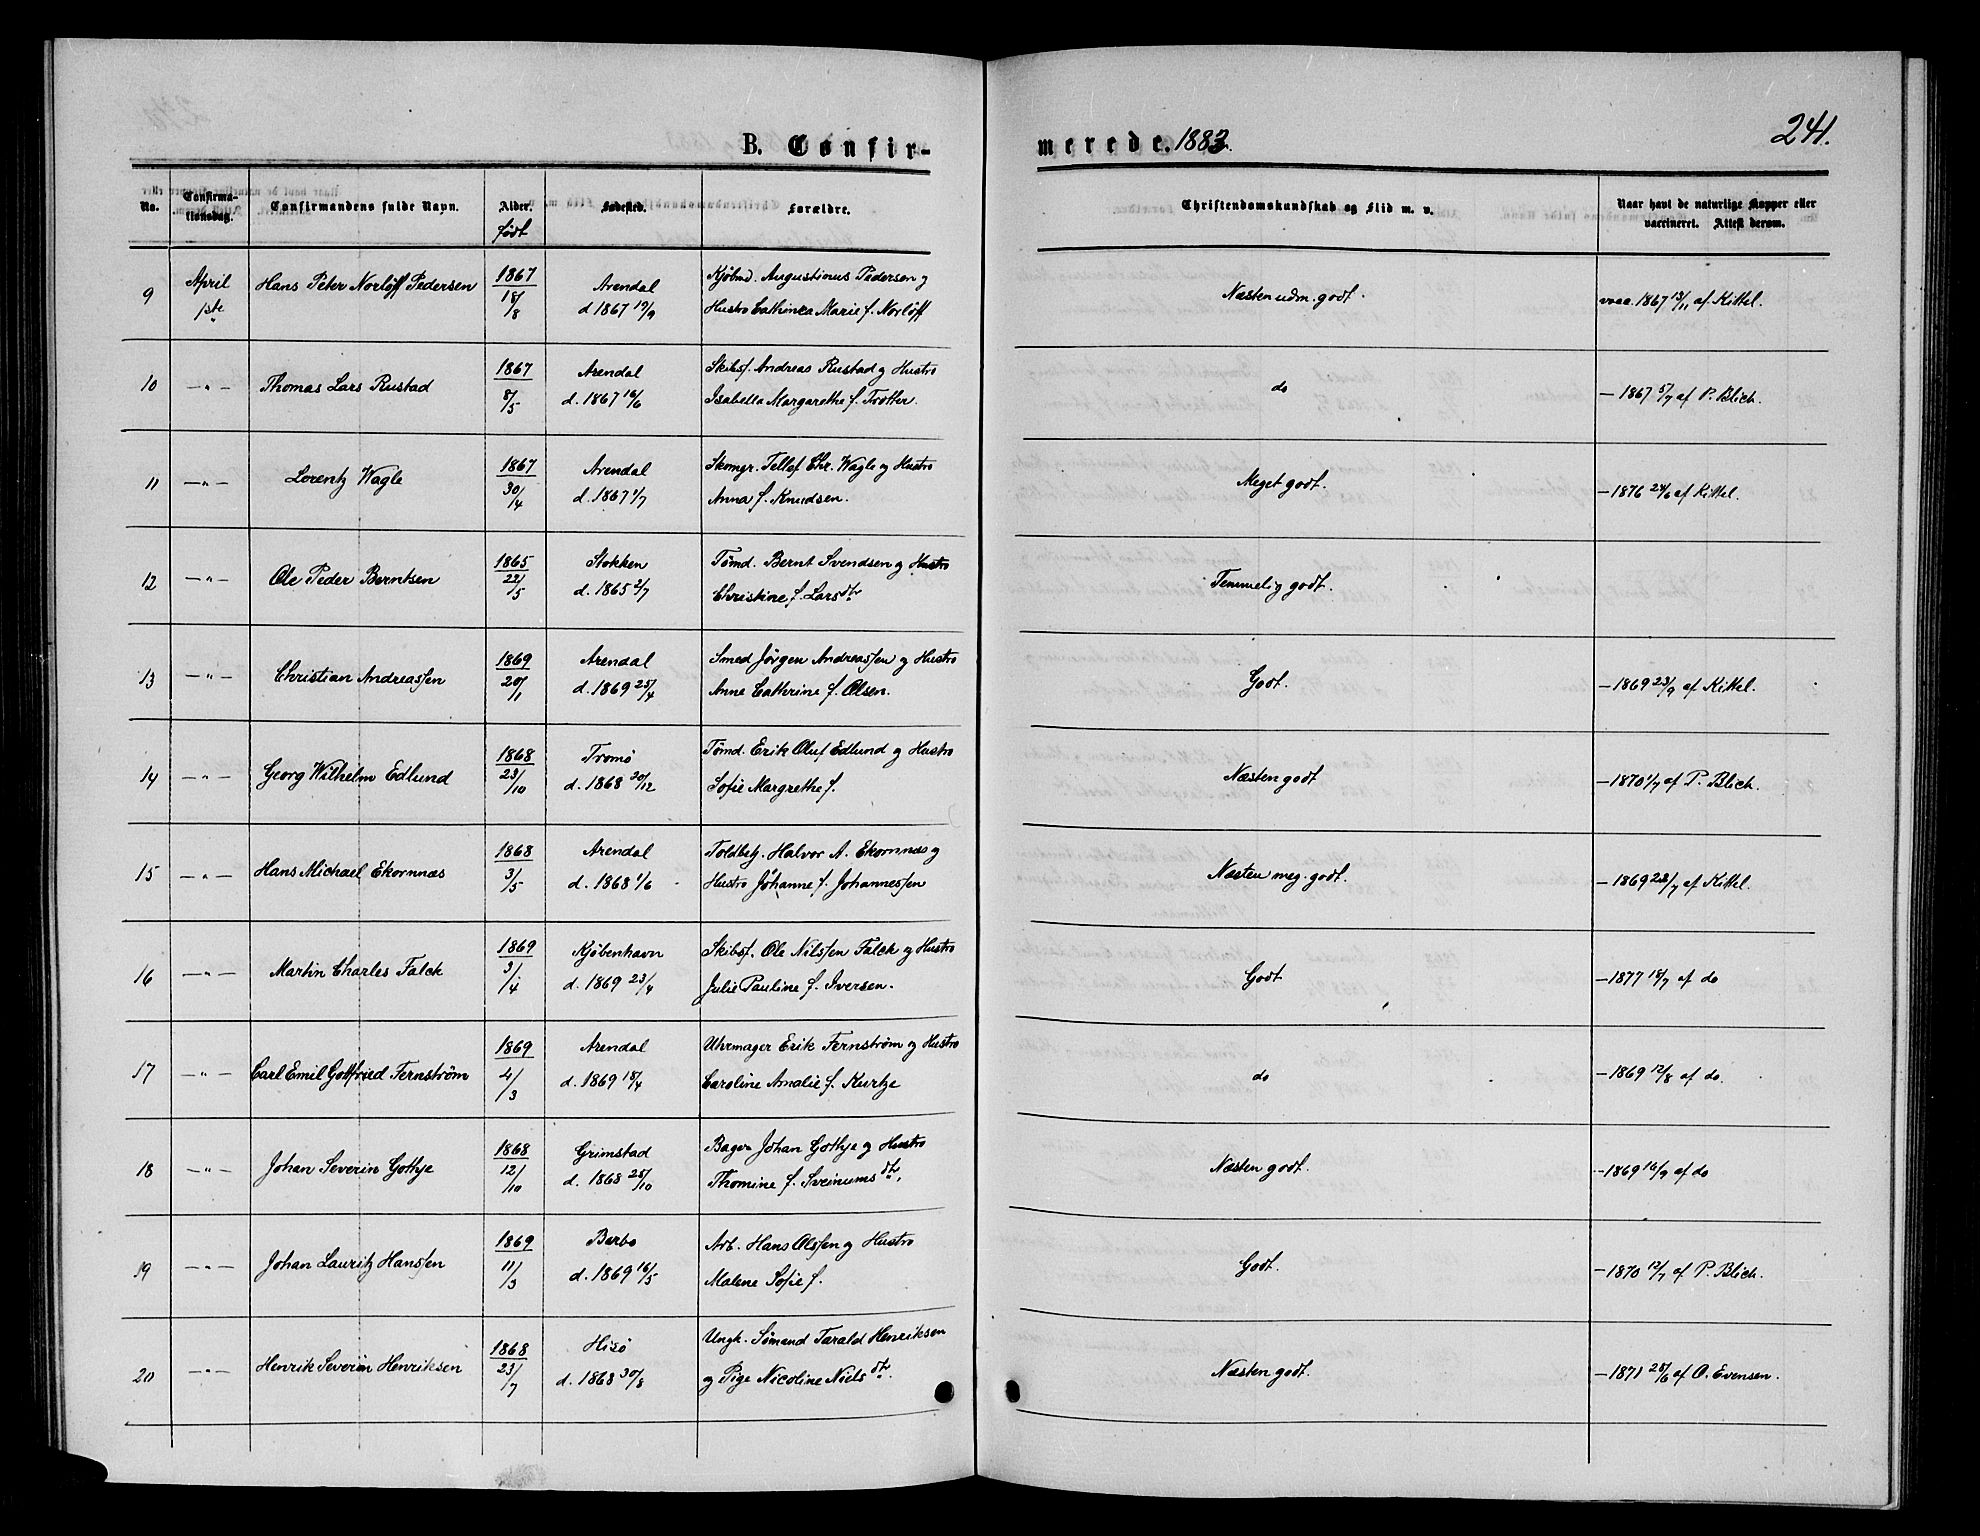 B. Confir-
merede. 1883.
241.
No.
Confirma-
tionsdag.
Confirmandens fulde Navn.
Alder.
født
Fødested.
Forældre.
Christendomskundskab og Flid m. v.
Naar havt de naturlige Kopper eller
vaccineret. Attest derom.
9 April Hans Peter Norløff Pedersen 1867 Arendal Kjøbmd. Augustinus Pedersen og Næsten udm. godt. vacc. 1867 13/11 af Kittel.
1ste 18/8 d 1867 19/9 Hustro Cathinca Marie f. Norløff
10 —"— Thomas Lars Rustad 1867 Arendal Skibsf. Andreas Rustad og Hustro do — 1867 5/7 af P. Blich.
8/5 d. 1867 16/6 Isabella Margarethe f. Trotter.
11 —"— Lorentz Wagle 1867 Arendal Skomgr. Tellef Chr. Wagle og Hustro Meget godt. — 1876 24/6 af Kittel.
30/4 d. 1867 1/7 Anna f. Knudsen.
12 —"— Ole Peder Berntsen 1865 Stokken Tømd. Bernt Svendsen og Hustro Temmelig godt.
22/5 d. 1865 2/7 Christine f. Larsdtr
13 —"— Christian Andreassen 1869 Arendal Smed Jørgen Andreassen og Hustro Godt. — 1869 23/9 af Kittel.
20/1 d. 1869 25/4 Anne Cathrine f. Olsen.
14 —"— Georg Wilhelm Edlund 1868 Tromø Tømd. Erik Oluf Edlund og Hustro Næsten godt — 1870 1/7 af P. Blich.
23/10 d. 1868 30/12 Sofie Margrethe f.
15 —"— Hans Michael Ekornnæs 1868 Arendal Toldbetj. Halvor A. Ekornnæs og Næsten meg. godt. — 1869 28/7 af Kittel.
3/5 d. 1868 1/6 Hustro Johanne f. Johannessen
16 —"— Martin Charles Falck 1869 Kjøbenhavn Skibsf. Ole Nilssen Falck og Hustro Godt — 1877 18/7 af do
3/4 d. 1869 23/4 Julie Pauline f. Iversen.
17 —"— Carl Emil Gottfried Fernstrøm 1869 Arendal Uhrmager Erik Fernstrøm og Hustro do — 1869 12/8 af do.
4/3 d. 1869 18/4 Caroline Amalie f. Kurtze
18 —"— Johan Severin Gottje 1868 Grimstad Bager Johan Gottje og Hustro Næsten godt. — 1869 16/9 af do
12/10 d. 1868 25/10 Thomine f. Sveinumsdtr.
19 —"— Johan Lauritz Hanssen 1869 Barbo Arb. Hans Olssen og Hustro Godt. — 1870 12/7 af P. Blich.
11/3 d. 1869 16/5 Malene Sofie f.
20 —"— Henrik Severin Henriksen 1868 Hisø Ungk. Sømand Tarald Henriksen Næsten godt. — 1871 28/6 af O. Evensen.
23/7 d. 1868 30/8 og Pige Nicoline Nielsdtr.